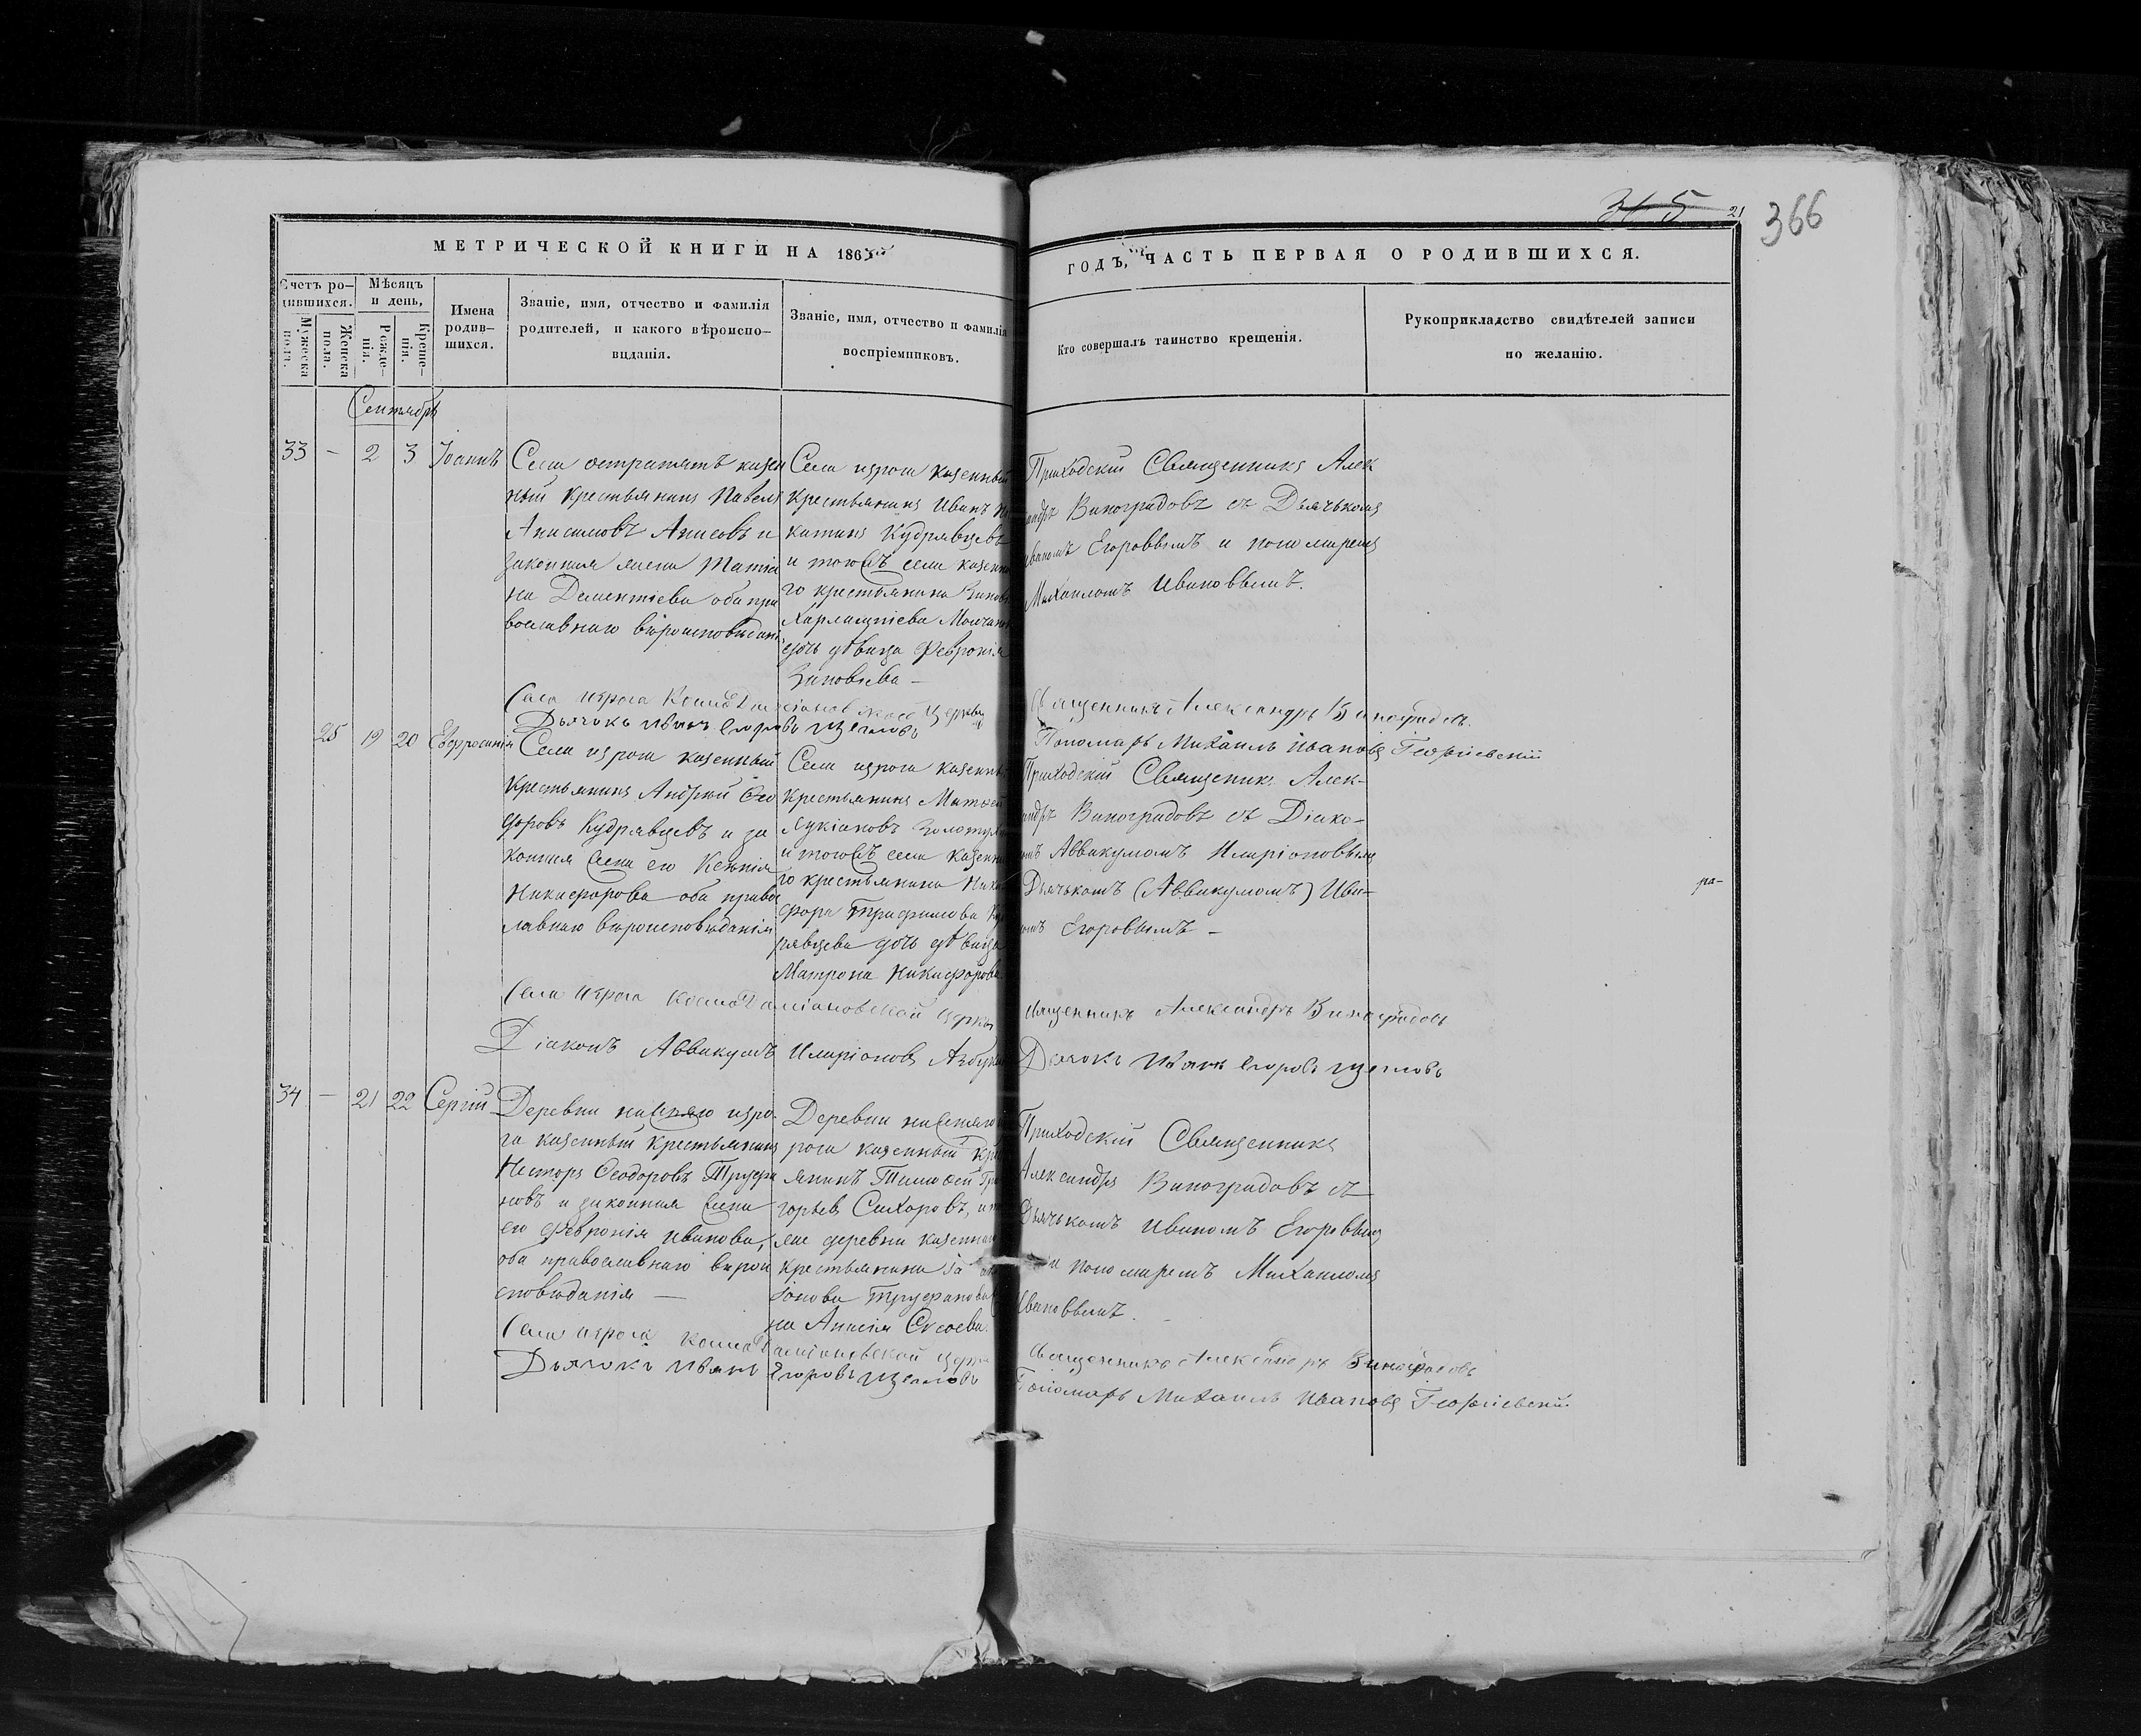 365 21 366
МЕТРИЧЕСКОЙ КНИГИ НА 186
ГОДЪ, ЧАСТЬ ПЕРВАЯ О РОДИВШИХСЯ.
Счетъ ро-
дившихся.
Мужеска
пола.
Женска
пола.
Мѣсяцъ
и день,
Рожде-
нія.
Креще-
нія.
Имена
родив-
шихся.
Званіе, имя, отчество и фамилія
родителей, и какого вѣроиспо-
вѣданія.
Званіе, имя, отчество и фамилія
воспріемниковъ.
Кто совершалъ таинство крещенія.
Рукоприкладство свидѣтелей записи
по желанію.
Сентябрь
33 - 2 3 Іоаннъ
Села казен
ный крестьянинъ Павелъ
Анисимовъ и
законная жена
на Дементіева оба пра
вославнаго вѣроисповѣданія
Села изрога казенный
крестьянинъ Иванъ Ни
китинъ Кудрявцевъ
и тогожъ села казенна
го крестьянина Зиновія
Харлампіева
дочь дѣвица Февронія
Зиновьева -
Приходскій Священникъ Алек
сандръ Виноградовъ съ Дьячькомъ
Иваномъ Егоровымъ и пономаремъ
Михаиломъ Ивановымъ.
Села изрога Космодаміановской Церкви
Священникъ Александръ Виноградовъ.
Дьячокъ Иванъ Егоровъ Щегловъ
Пономарь Михаилъ Ивановъ Георгіевскій
25 19 20 Евфросинія
Села изрога казенный
крестьянинъ Андрей Ѳео
доровъ Кудрявцевъ и за
конная жена его Ксенія
Никифорова оба правос
лавнаго вѣроисповѣданія
Села изрога казенный
крестьянинъ Матѳей
Лукіановъ Золотухинъ
и тогожъ села казенна
го крестьянина Ники
фора Трифимова Куд
рявцева дочь дѣвица
Матрона Никифорова
Приходскій Священникъ Алек-
сандръ Виноградовъ съ Діако-
номъ Аввакумомъ Иларіоновымъ
Дьячькомъ (Аввакумомъ) Ива-
номъ Егоровымъ -
ра-
Села изрога Космодаміановской Церкви
Священникъ Александръ Виноградовъ
Діаконъ Аввакумъ Иларіоновъ
Дьячокъ Иванъ Егоровъ Щегловъ
34 - 21 22 Сергій
Деревни нижняго изро
га казенный крестьянинъ
Несторъ Ѳеодоровъ Труфа
новъ и законная жена
его Февронія Иванова,
оба православнаго вѣрои
сповѣданія -
Деревни нижняго из
рога казенный крест
янинъ Тимоѳей Гри
горьевъ Сихоровъ, и
деревни казеннаго
крестьянина
Труфанова
на Анисія
Приходскій Священникъ
Александръ Виноградовъ съ
Дьячькомъ Иваномъ Егоровымъ
и пономаремъ Михаиломъ
Ивановымъ.
Села изрога Космодаміановской Церкви
Священникъ Александръ Виноградовъ
Дьячокъ Иванъ Егоровъ Щегловъ
Пономарь Михаилъ Ивановъ Георгіевскій